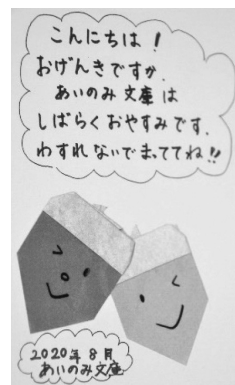 こんにちは！
おげんきですか.
あいのみ文庫は
しばらくおやすみです.
わすれないでまっててね!!
2020年8月
あいのみ文庫